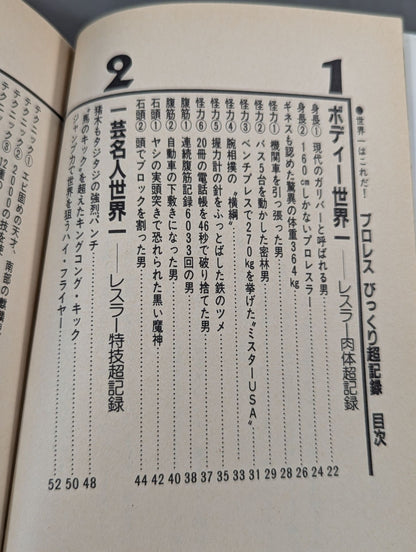 ●世界一はこれだ！ プロレス びっくり超記録 目次
1 ボディー世界一――レスラー肉体超記録
身長① 現代のガリバーと呼ばれる男……22
身長② 160cmしかないプロレスラー……24
ギネスも認めた驚異の体重364kg……26
怪力① 機関車を引っ張った男……28
怪力② バス5台を動かした密林男……29
怪力③ ベンチプレスで270kgを挙げた〝ミスターUSA〟……31
怪力④ 腕相撲の〝横綱〟……33
怪力⑤ 握力計の針をふっとばした鉄のツメ……35
怪力⑥ 20冊の電話帳を46秒で破り捨てた男……37
腹筋① 連続腹筋記録6033回の男……38
腹筋② 自動車の下敷きになった男……40
石頭① ヤシの実頭突きで恐れられた黒い魔神……42
石頭② 頭でブロックを割った男……44
2 一芸名人世界一――レスラー特技超記録
猪木もタジタジの強烈パンチ……48
〝馬のキック〟を超えたキングコング・キック……50
ジャンプ力で世界を狙うハイ・フライヤー……52
テクニック①
テクニック② エビ固めの天才、南部の
テクニック③ 200の技を